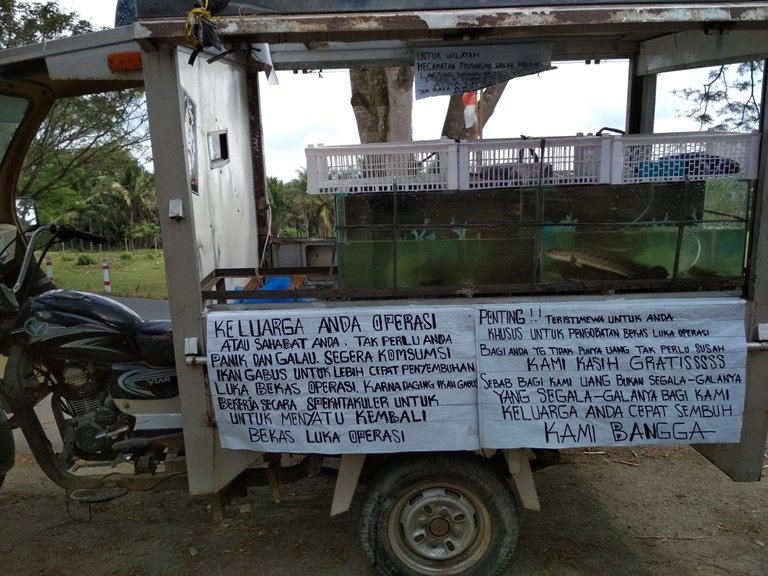 UNTUK WILAYAH
KECAMATAN PEUSANGAN
KELUARGA ANDA OPERASI
ATAU SAHABAT ANDA, TAK PERLU ANDA
PANIK DAN GALAU. SEGERA KOMSUMSI
IKAN GABUS UNTUK LEBIH CEPAT PENYEMBUHAN
LUKA BEKAS OPERASI. KARNA DAGING IKAN GABUS
BEKERJA SECARA SPEKHTAKULER UNTUK
UNTUK MENYATU KEMBALI
BEKAS LUKA OPERASI
PENTING!!! TERISTIMEWA UNTUK ANDA
KHUSUS UNTUK PENGOBATAN BEKAS LUKA OPERASI
BAGI ANDA YG TIDAK PUNYA UANG TAK PERLU SUSAH
KAMI KASIH GRATISSSSS
SEBAB BAGI KAMI UANG BUKAN SEGALA-GALANYA
YANG SEGALA-GALANYA BAGI KAMI
KELUARGA ANDA CEPAT SEMBUH
KAMI BANGGA